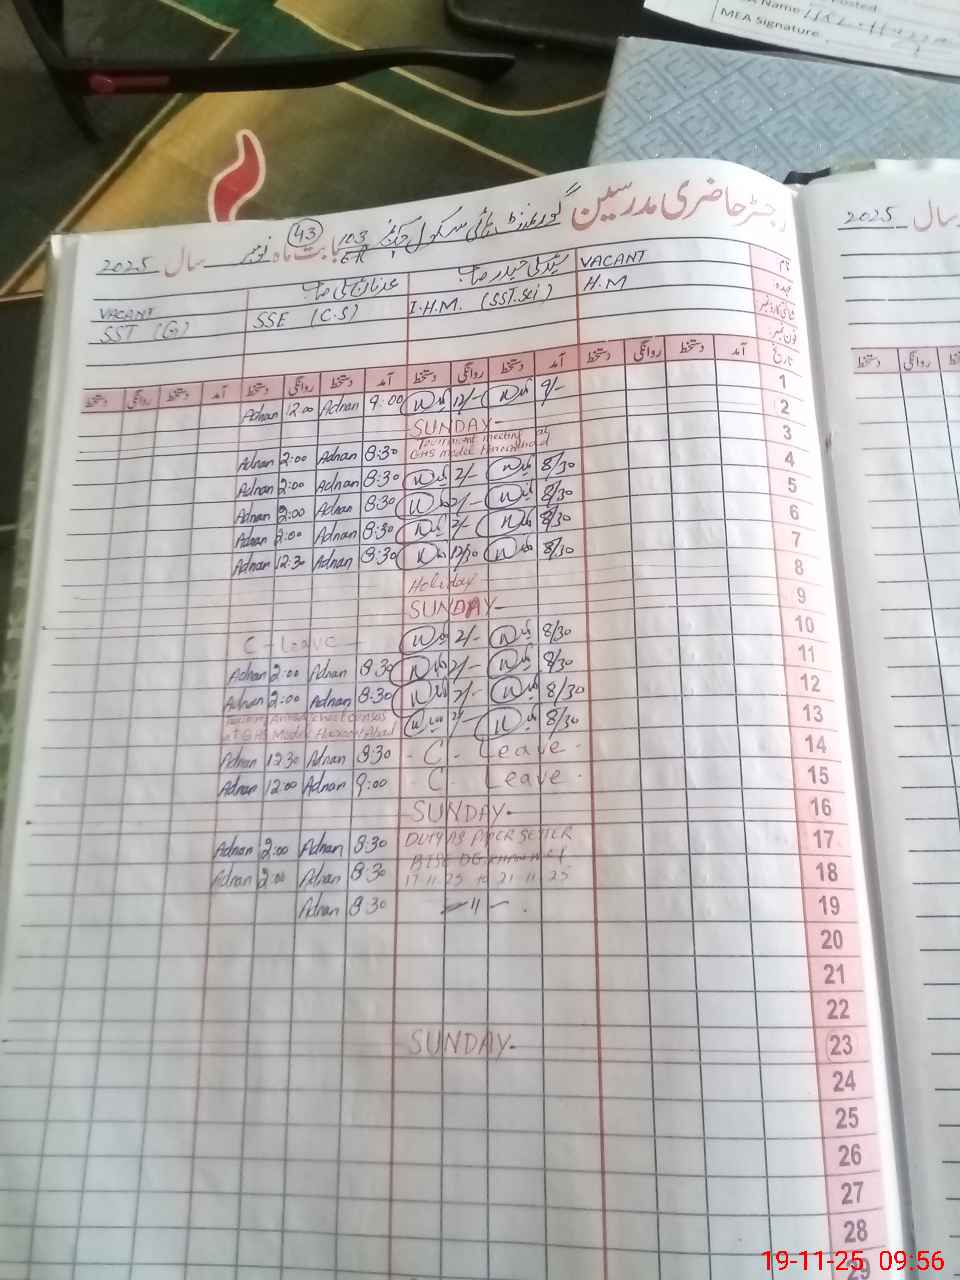 MEA Name
MEA Signature
رجسٹر حاضری مدرسین گورنمنٹ ہائی سکول چک نمبر 103 بابت ماہ نومبر سال 2025
43
سال 2025
نام VACANT عدنان علی صاحب VACANT
عہدہ H.M I.H.M. (SST.Sci) SSE (C.S) SST (G)
شناختی کارڈ نمبر:
فون نمبر:
تاریخ آمد دستخط روانگی دستخط آمد دستخط روانگی دستخط آمد دستخط روانگی دستخط آمد دستخط روانگی دستخط
1 9/- 12/- 9:00 Adnan 12:00 Adnan
2 SUNDAY
3 meeting at GHS Model 8:30 Adnan 2:00 Adnan
4 8/30 2/- 8:30 Adnan 2:00 Adnan
5 8/30 2/- 8:30 Adnan 2:00 Adnan
6 8/30 2/- 8:30 Adnan 2:00 Adnan
7 8/30 12/30 8:30 Adnan 12:30 Adnan
8 Holiday
9 SUNDAY
10 8/30 2/- C-Leave
11 8/30 2/- 8:30 Adnan 2:00 Adnan
12 8/30 2/- 8:30 Adnan 2:00 Adnan
13 8/30 2/- at GHS Model
14 - C - Leave - 8:30 Adnan 12:30 Adnan
15 - C - Leave - 9:00 Adnan 12:00 Adnan
16 SUNDAY
17 DUTY AS PAPER SETTER 8:30 Adnan 2:00 Adnan
18 17-11-25 to 21-11-25 8:30 Adnan 2:00 Adnan
19 — 11 — 8:30 Adnan
20
21
22
23 SUNDAY
24
25
26
27
28
29
19-11-25 09:56